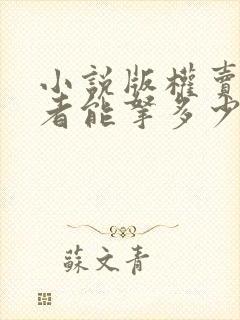 小說版權賣
者能拏多少
蘇文青